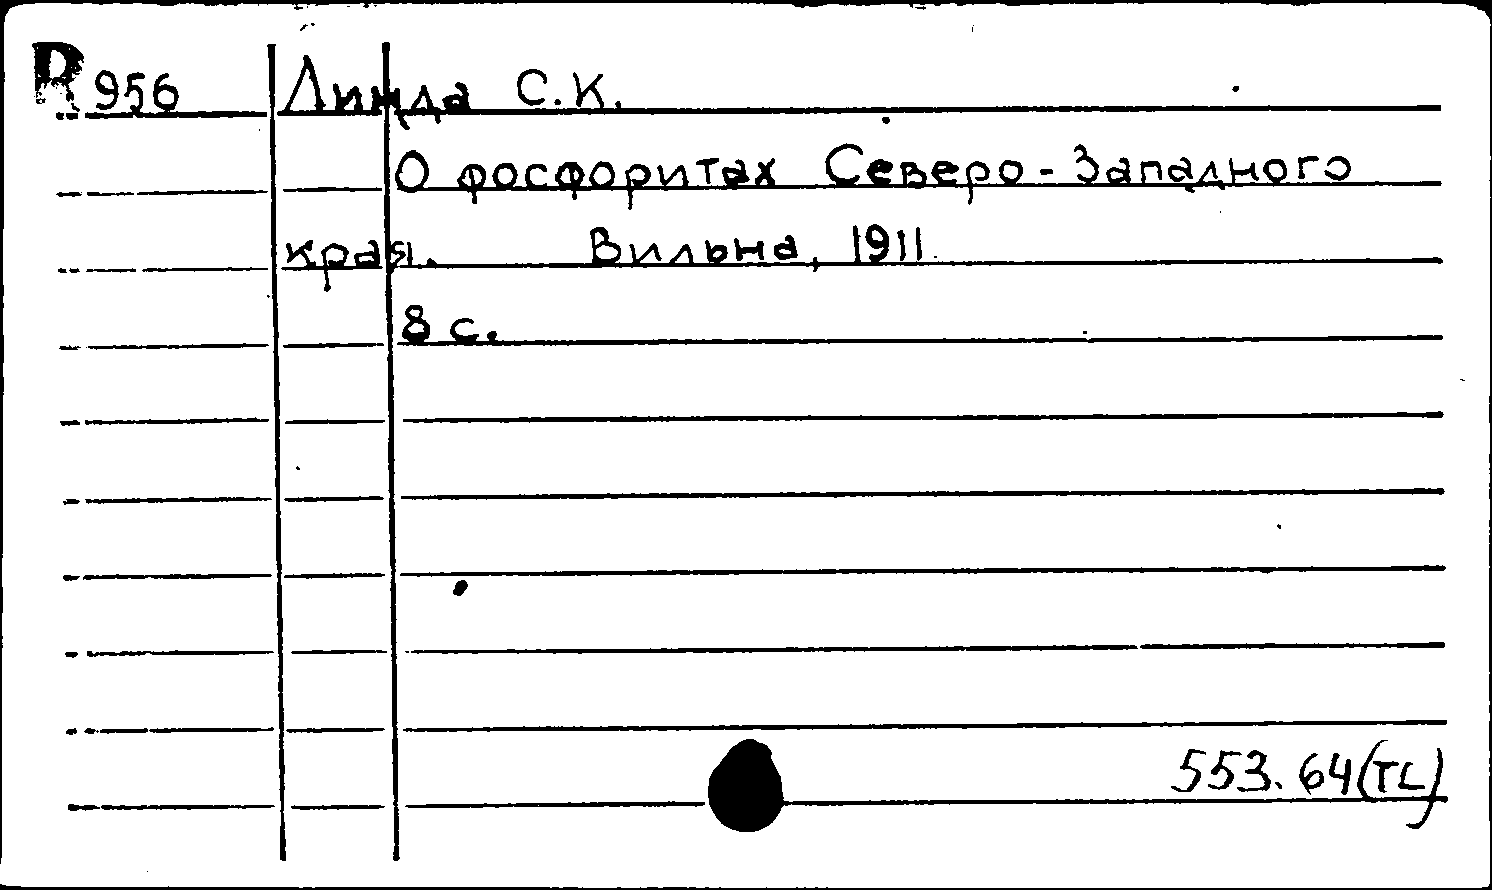 R 956 Линда С.К.
О фосфоритах Северо-Западного
края. Вильна, 1911
8 с.
553.64(TL)